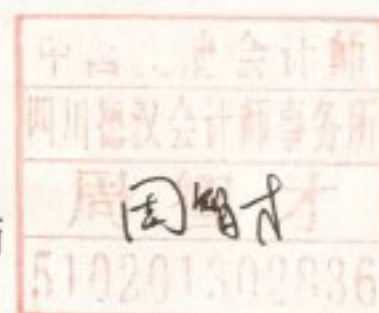 会计师
四川德汉会计师事务所
周智才
510201302836